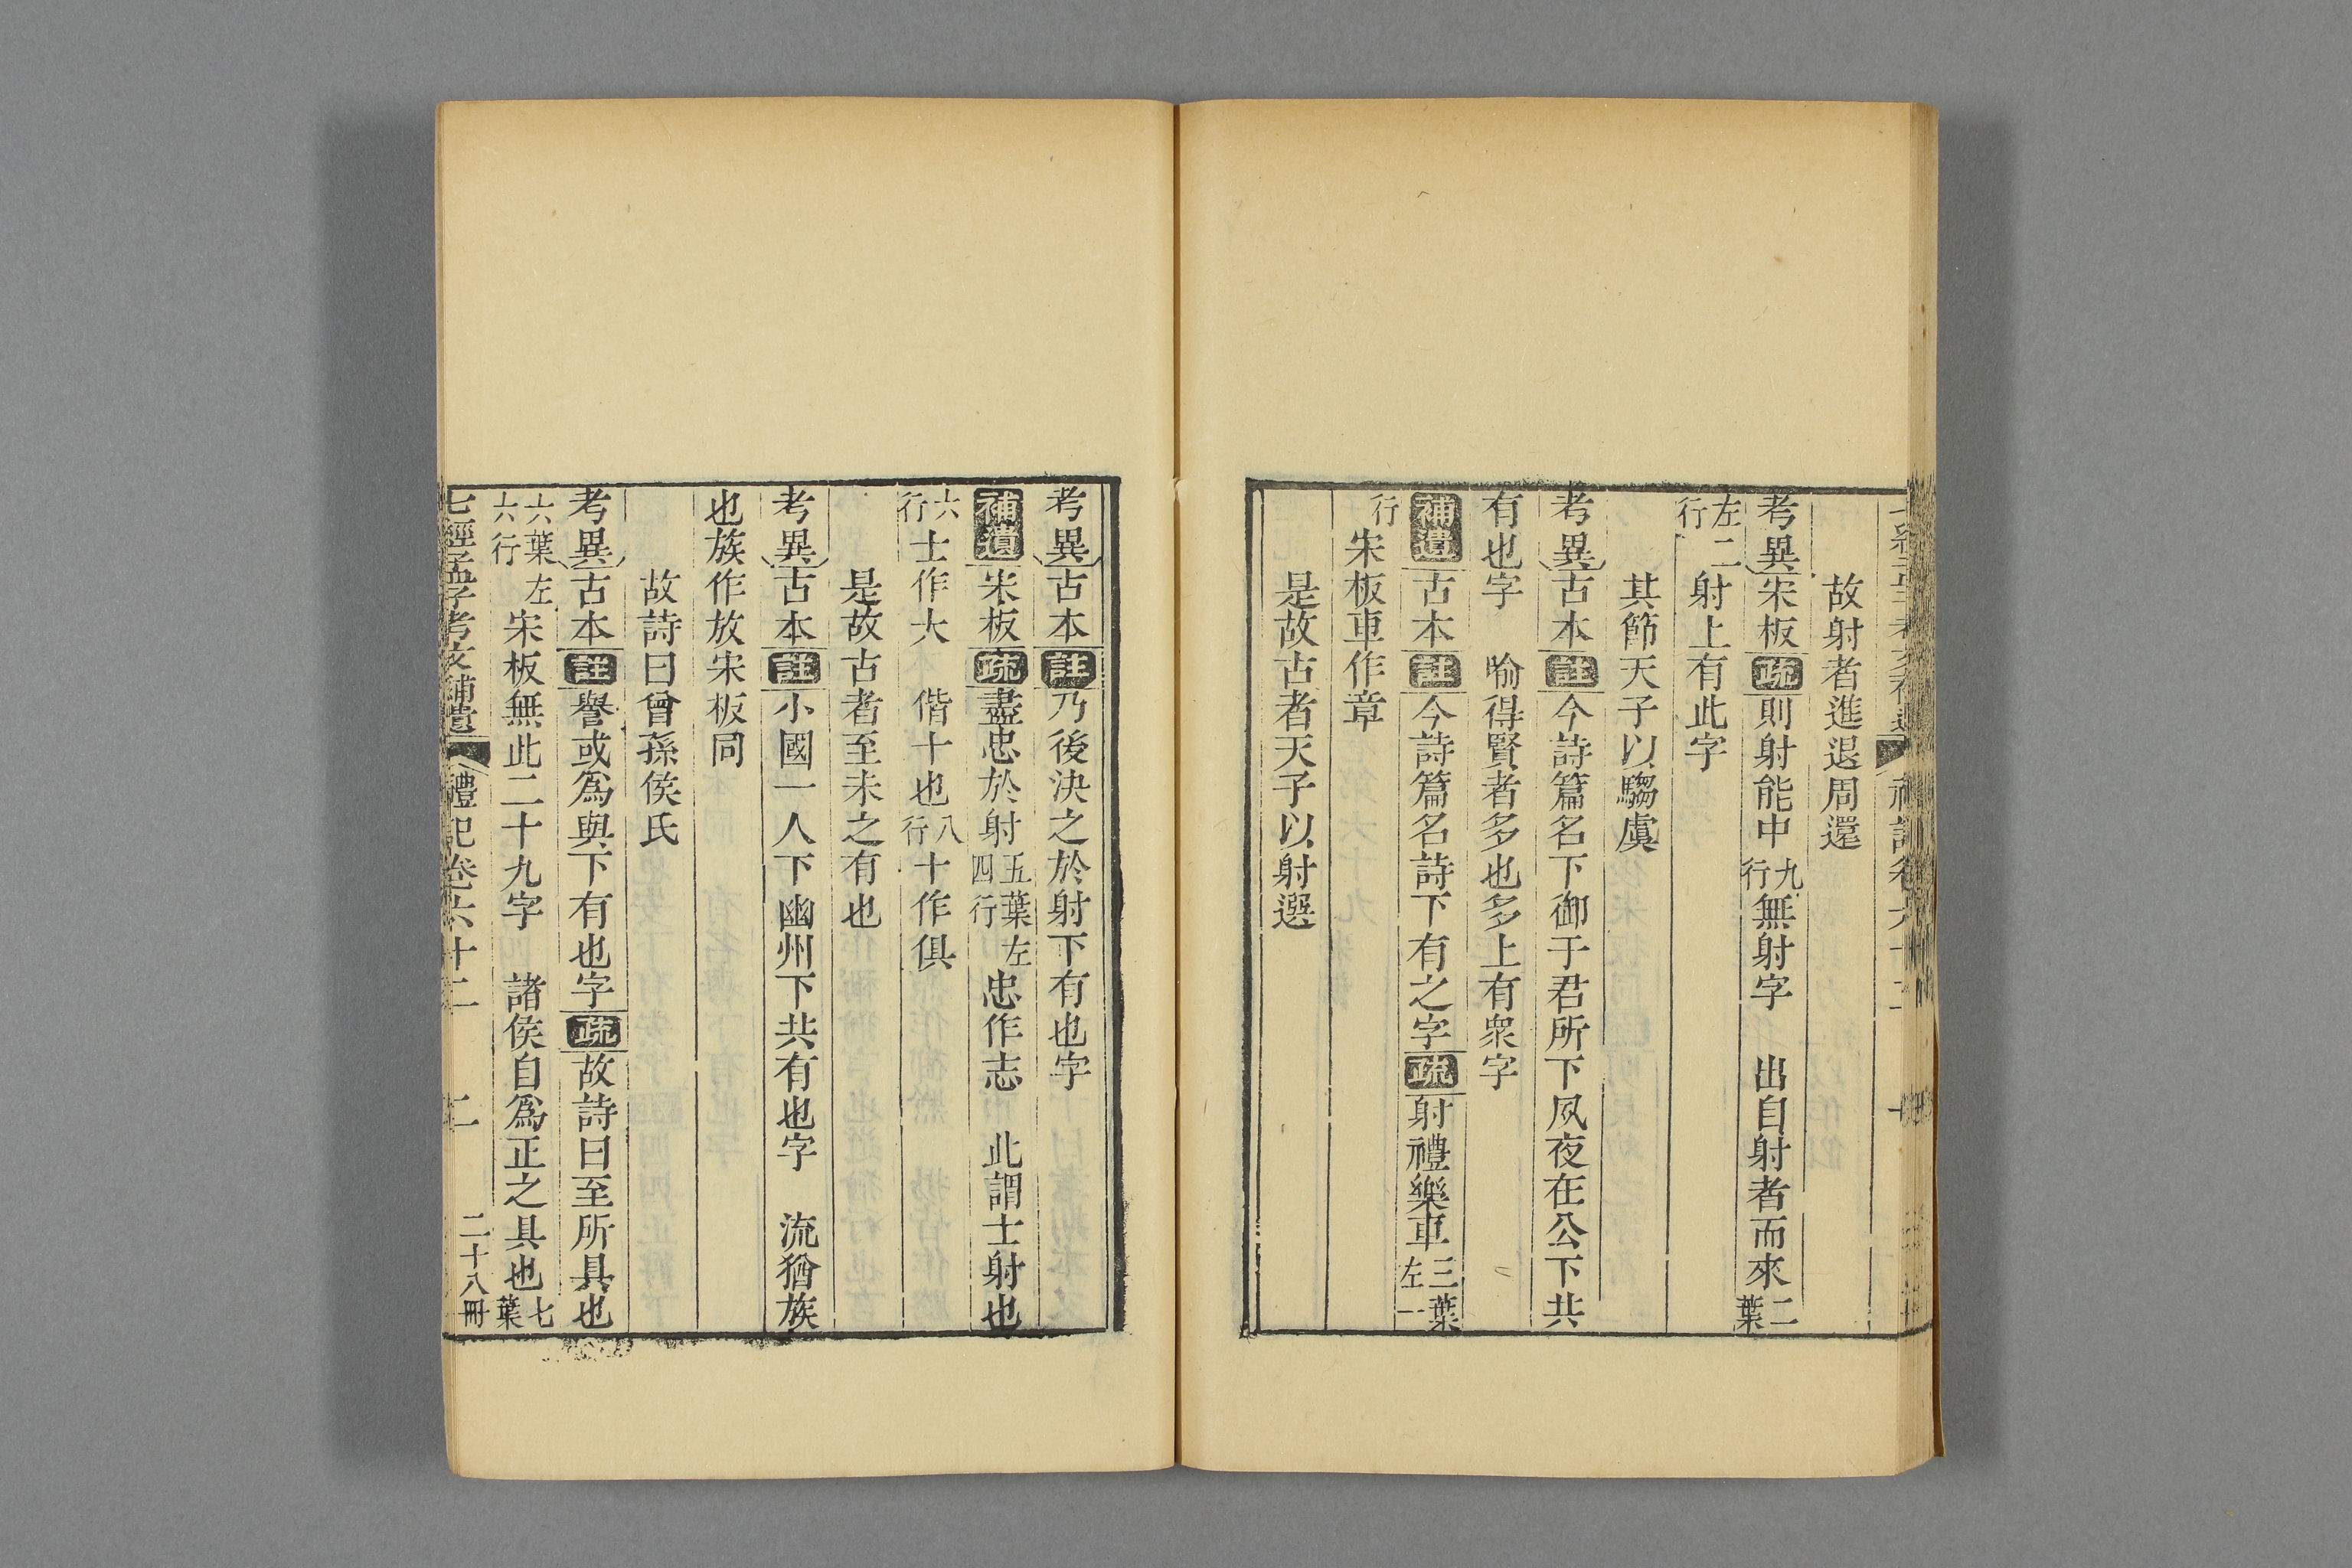 故射者進退周還
考異宋板疏則射能中九行無射字　出自射者而來二葉
左二行射上有此字
其節天子以騶虞
考異古本註今詩篇名下御于君所下夙夜在公下共
有也字　喻得賢者多也多上有衆字
補遺古本註今詩篇名詩下有之字疏射禮樂車三葉左一
行宋板車作章
是故古者天子以射選
考異古本註乃後決之於射下有也字
補遺宋板疏盡忠於射五葉左四行忠作志　此謂士射也
六行士作大　偕十也八行十作俱
是故古者至未之有也
考異古本註小國一人下幽州下共有也字　流猶族
也族作放宋板同
故詩曰曾孫侯氏
考異古本註譽或爲與下有也字疏故詩曰至所具也
六葉左六行宋板無此二十九字　諸侯自爲正之具也七葉
七經孟子考文補遺　禮記卷六十二　二　二十八冊